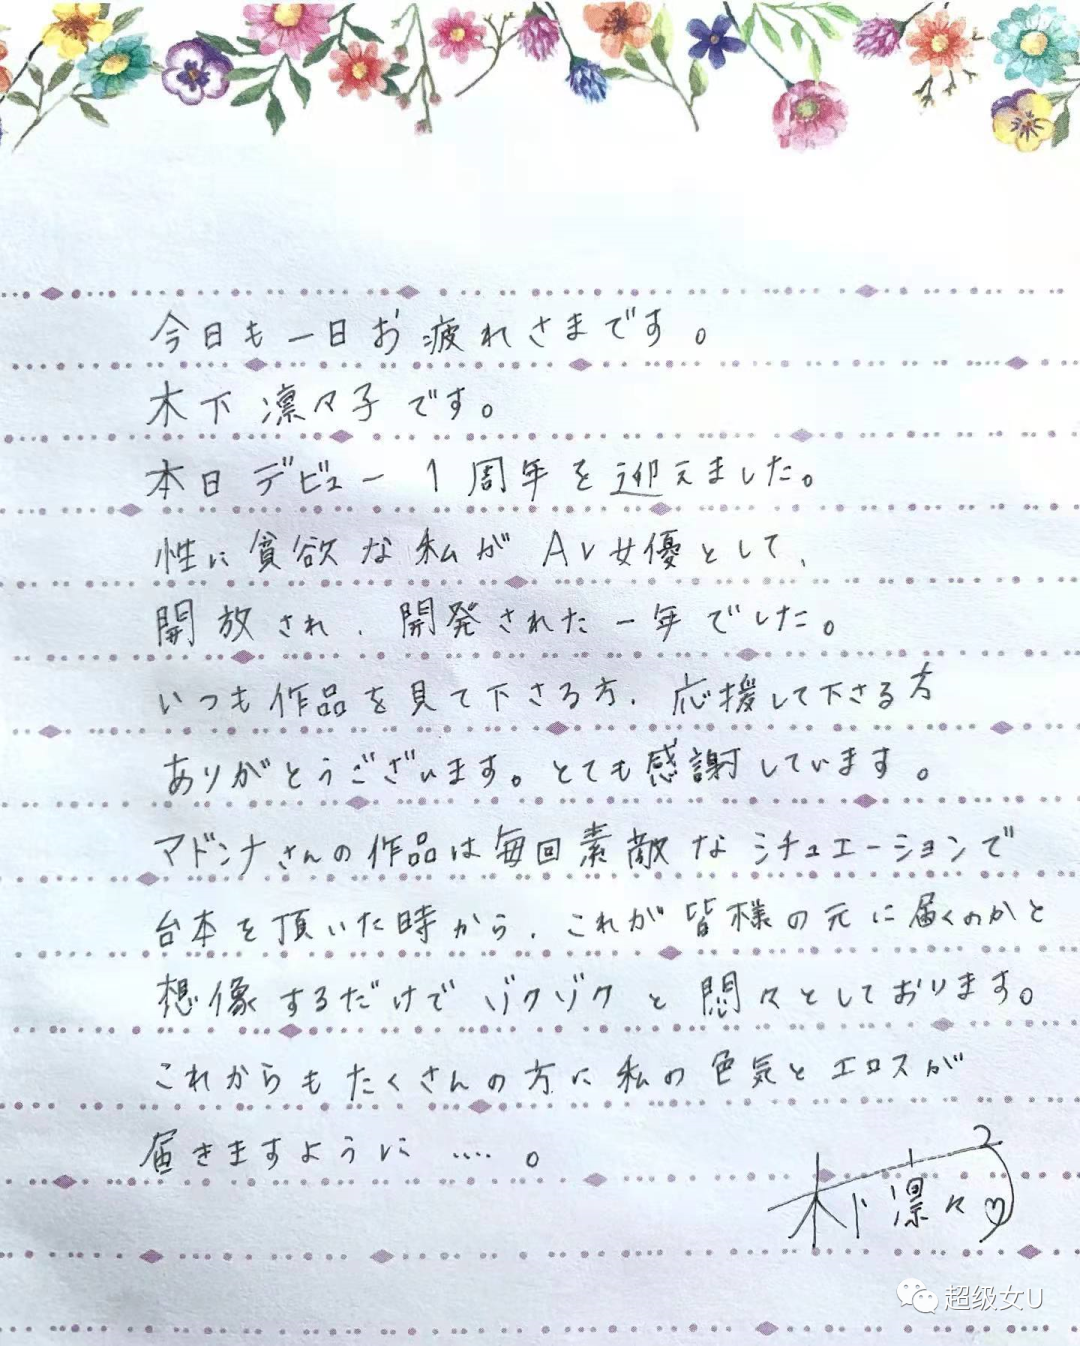 今日も一日お疲れさまです。
木下凛々子です。
本日デビュー1周年を迎えました。
性に貧欲な私がAV女優として、
開放され、開発された一年でした。
いつも作品を見て下さる方、応援して下さる方
ありがとうございます。とても感謝しています。
マドンナさんの作品は毎回素敵なシチュエーションで
台本を頂いた時から、これが皆様の元に届くのかと
想像するだけでゾクゾクと悶々としております。
これからもたくさんの方に私の色気とエロスが
届きますように‥‥。
木下凛々子
超级女U